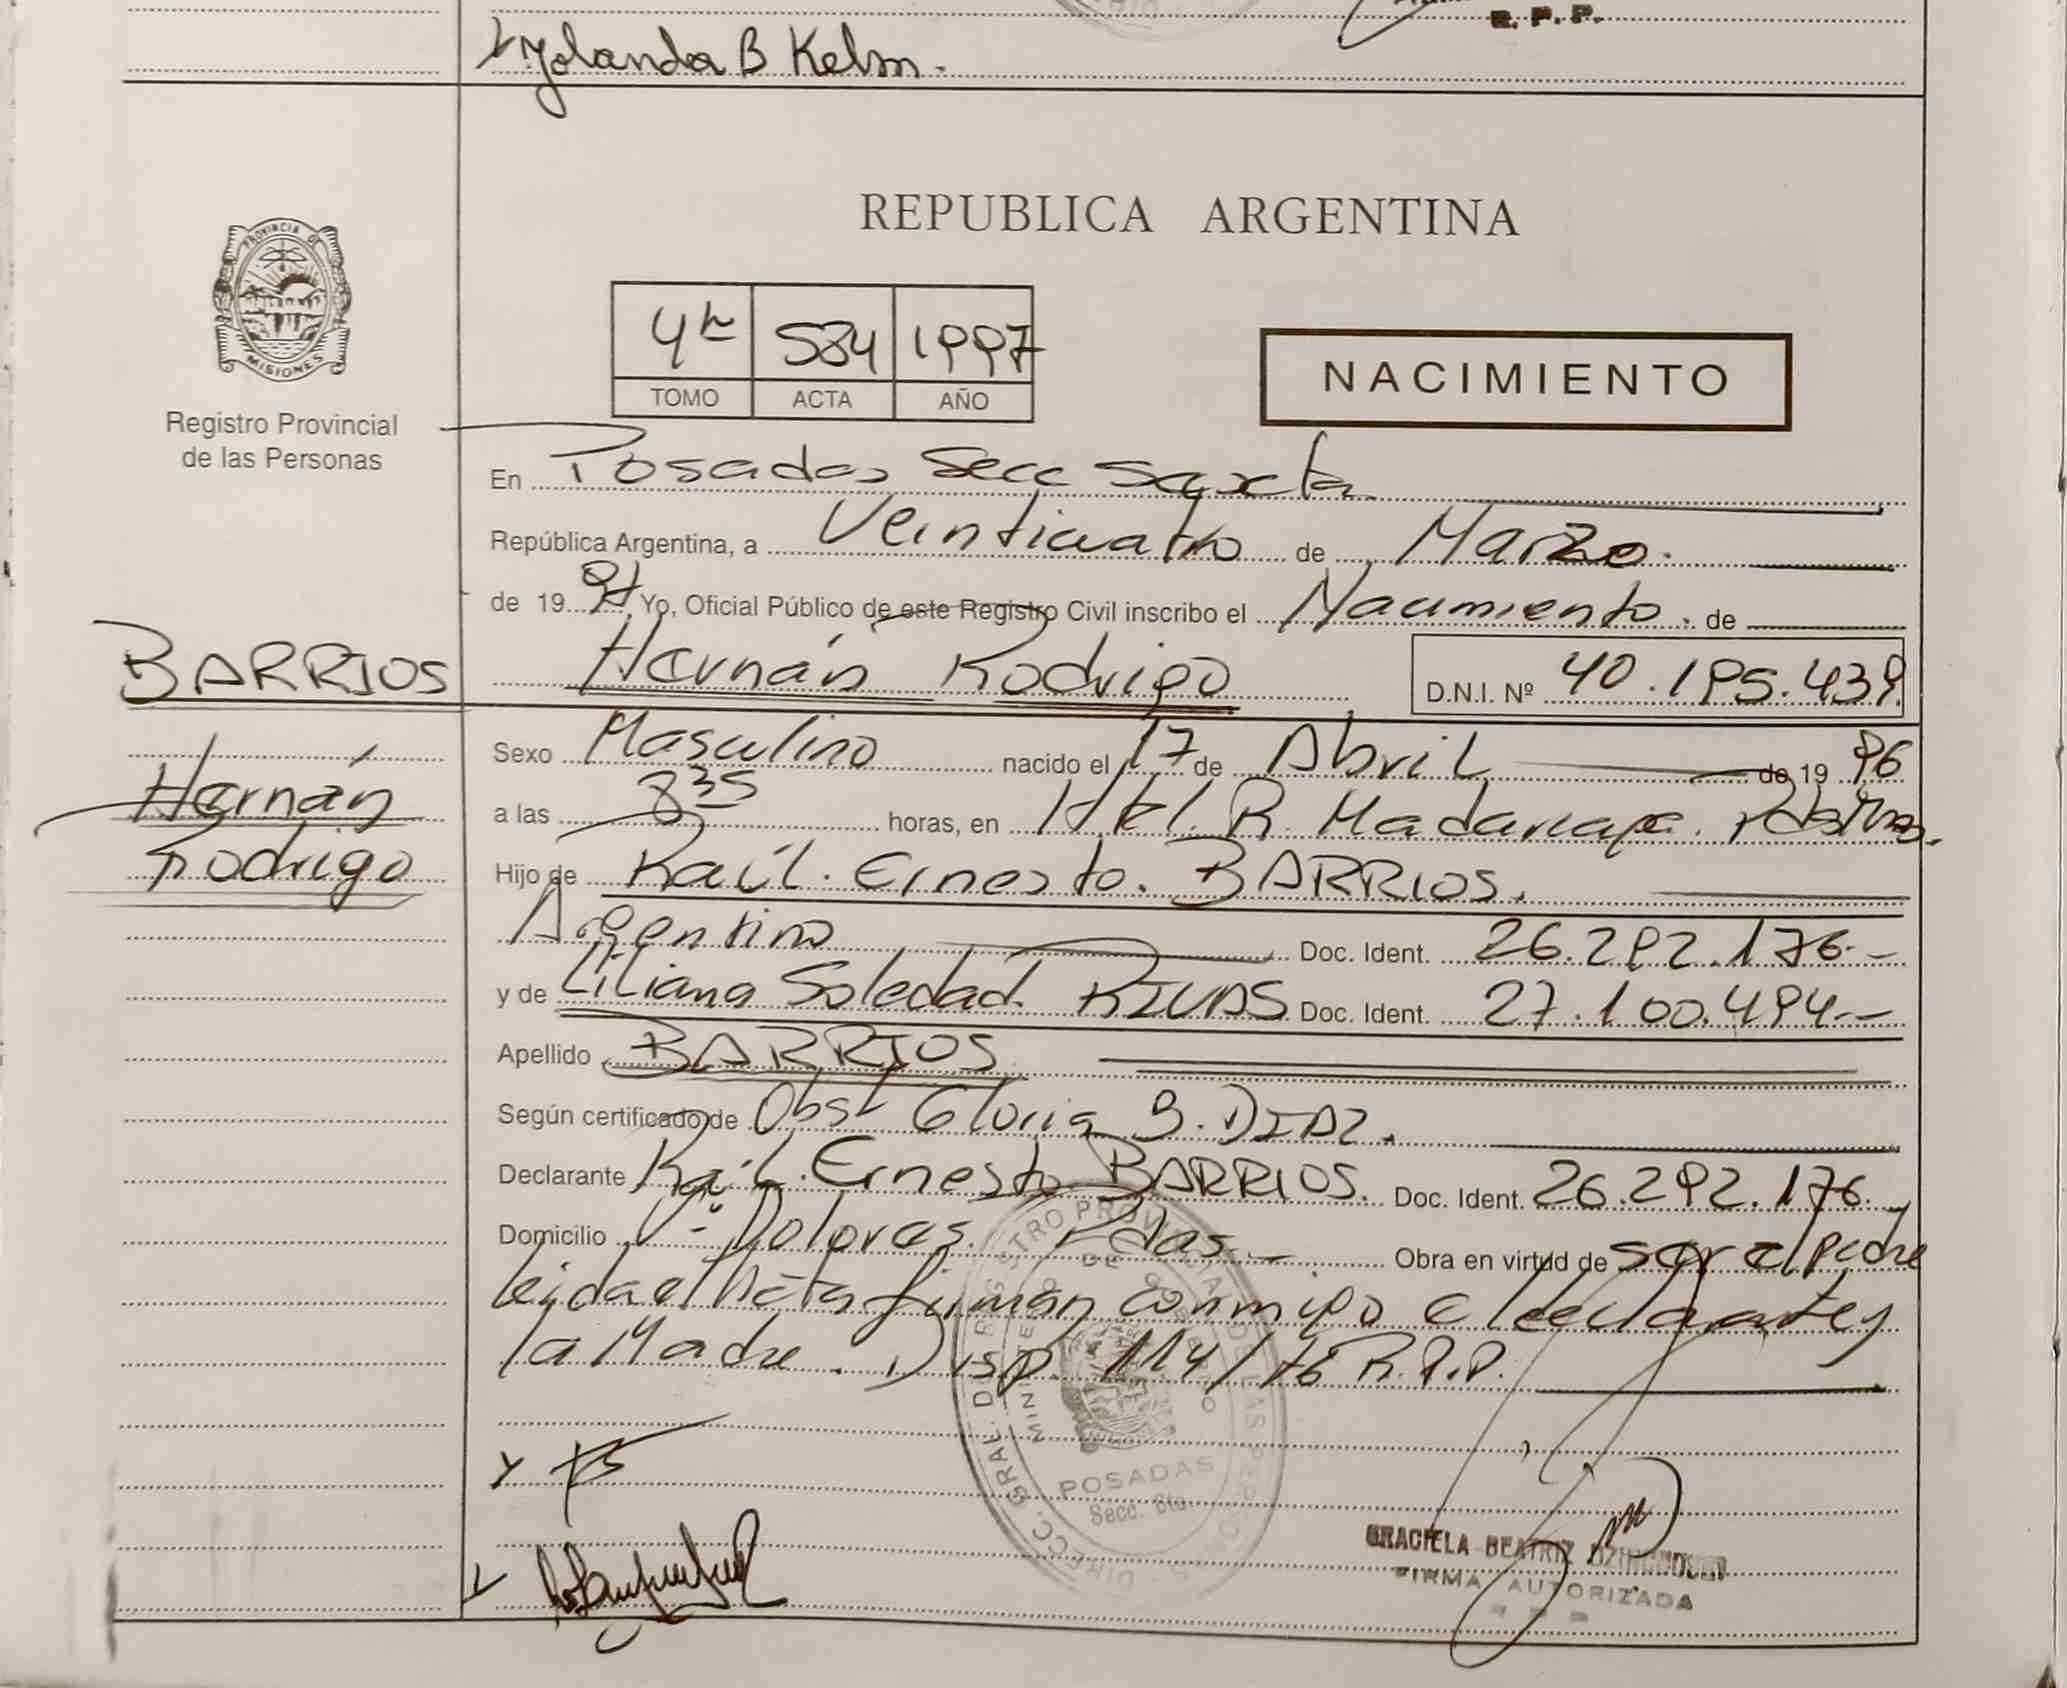 Yolanda B Kelm.
R. P. P.
PROVINCIA DE
MISIONES
Registro Provincial
de las Personas
REPUBLICA ARGENTINA
4º 584 1997
TOMO ACTA AÑO
NACIMIENTO
En Posadas Secc Sexta
República Argentina, a Veinticuatro de Marzo.
de 1997 Yo, Oficial Público de este Registro Civil inscribo el Nacimiento. de
BARRIOS Hernán Rodrigo D.N.I. Nº 40.195.439.
Hernán
Rodrigo
Sexo Masculino nacido el 17 de Abril de 19 96
a las 8 35 horas, en Htal. R. Madariaga. Posadas.
Hijo de Raúl. Ernesto. BARRIOS.
Argentino Doc. Ident. 26.292.176.-
y de Liliana Soledad. RIVAS Doc. Ident. 27.100.494.-
Apellido BARRIOS
Según certificado de Obst Gloria B. DIAZ.
Declarante Raúl. Ernesto BARRIOS. Doc. Ident. 26.292.176.
Domicilio Vª Dolores. Pdas.- Obra en virtud de ser el padre
leida el Acta firman conmigo el declarante y
la Madre. Disp. 114/76 R.P.P.
DIRECC. GRAL. DEL REGISTRO PROVINCIAL DE LAS PERSONAS
MINISTERIO DE GOBIERNO
POSADAS
Secc. 6ta.
GRACIELA BEATRIZ
FIRMA AUTORIZADA